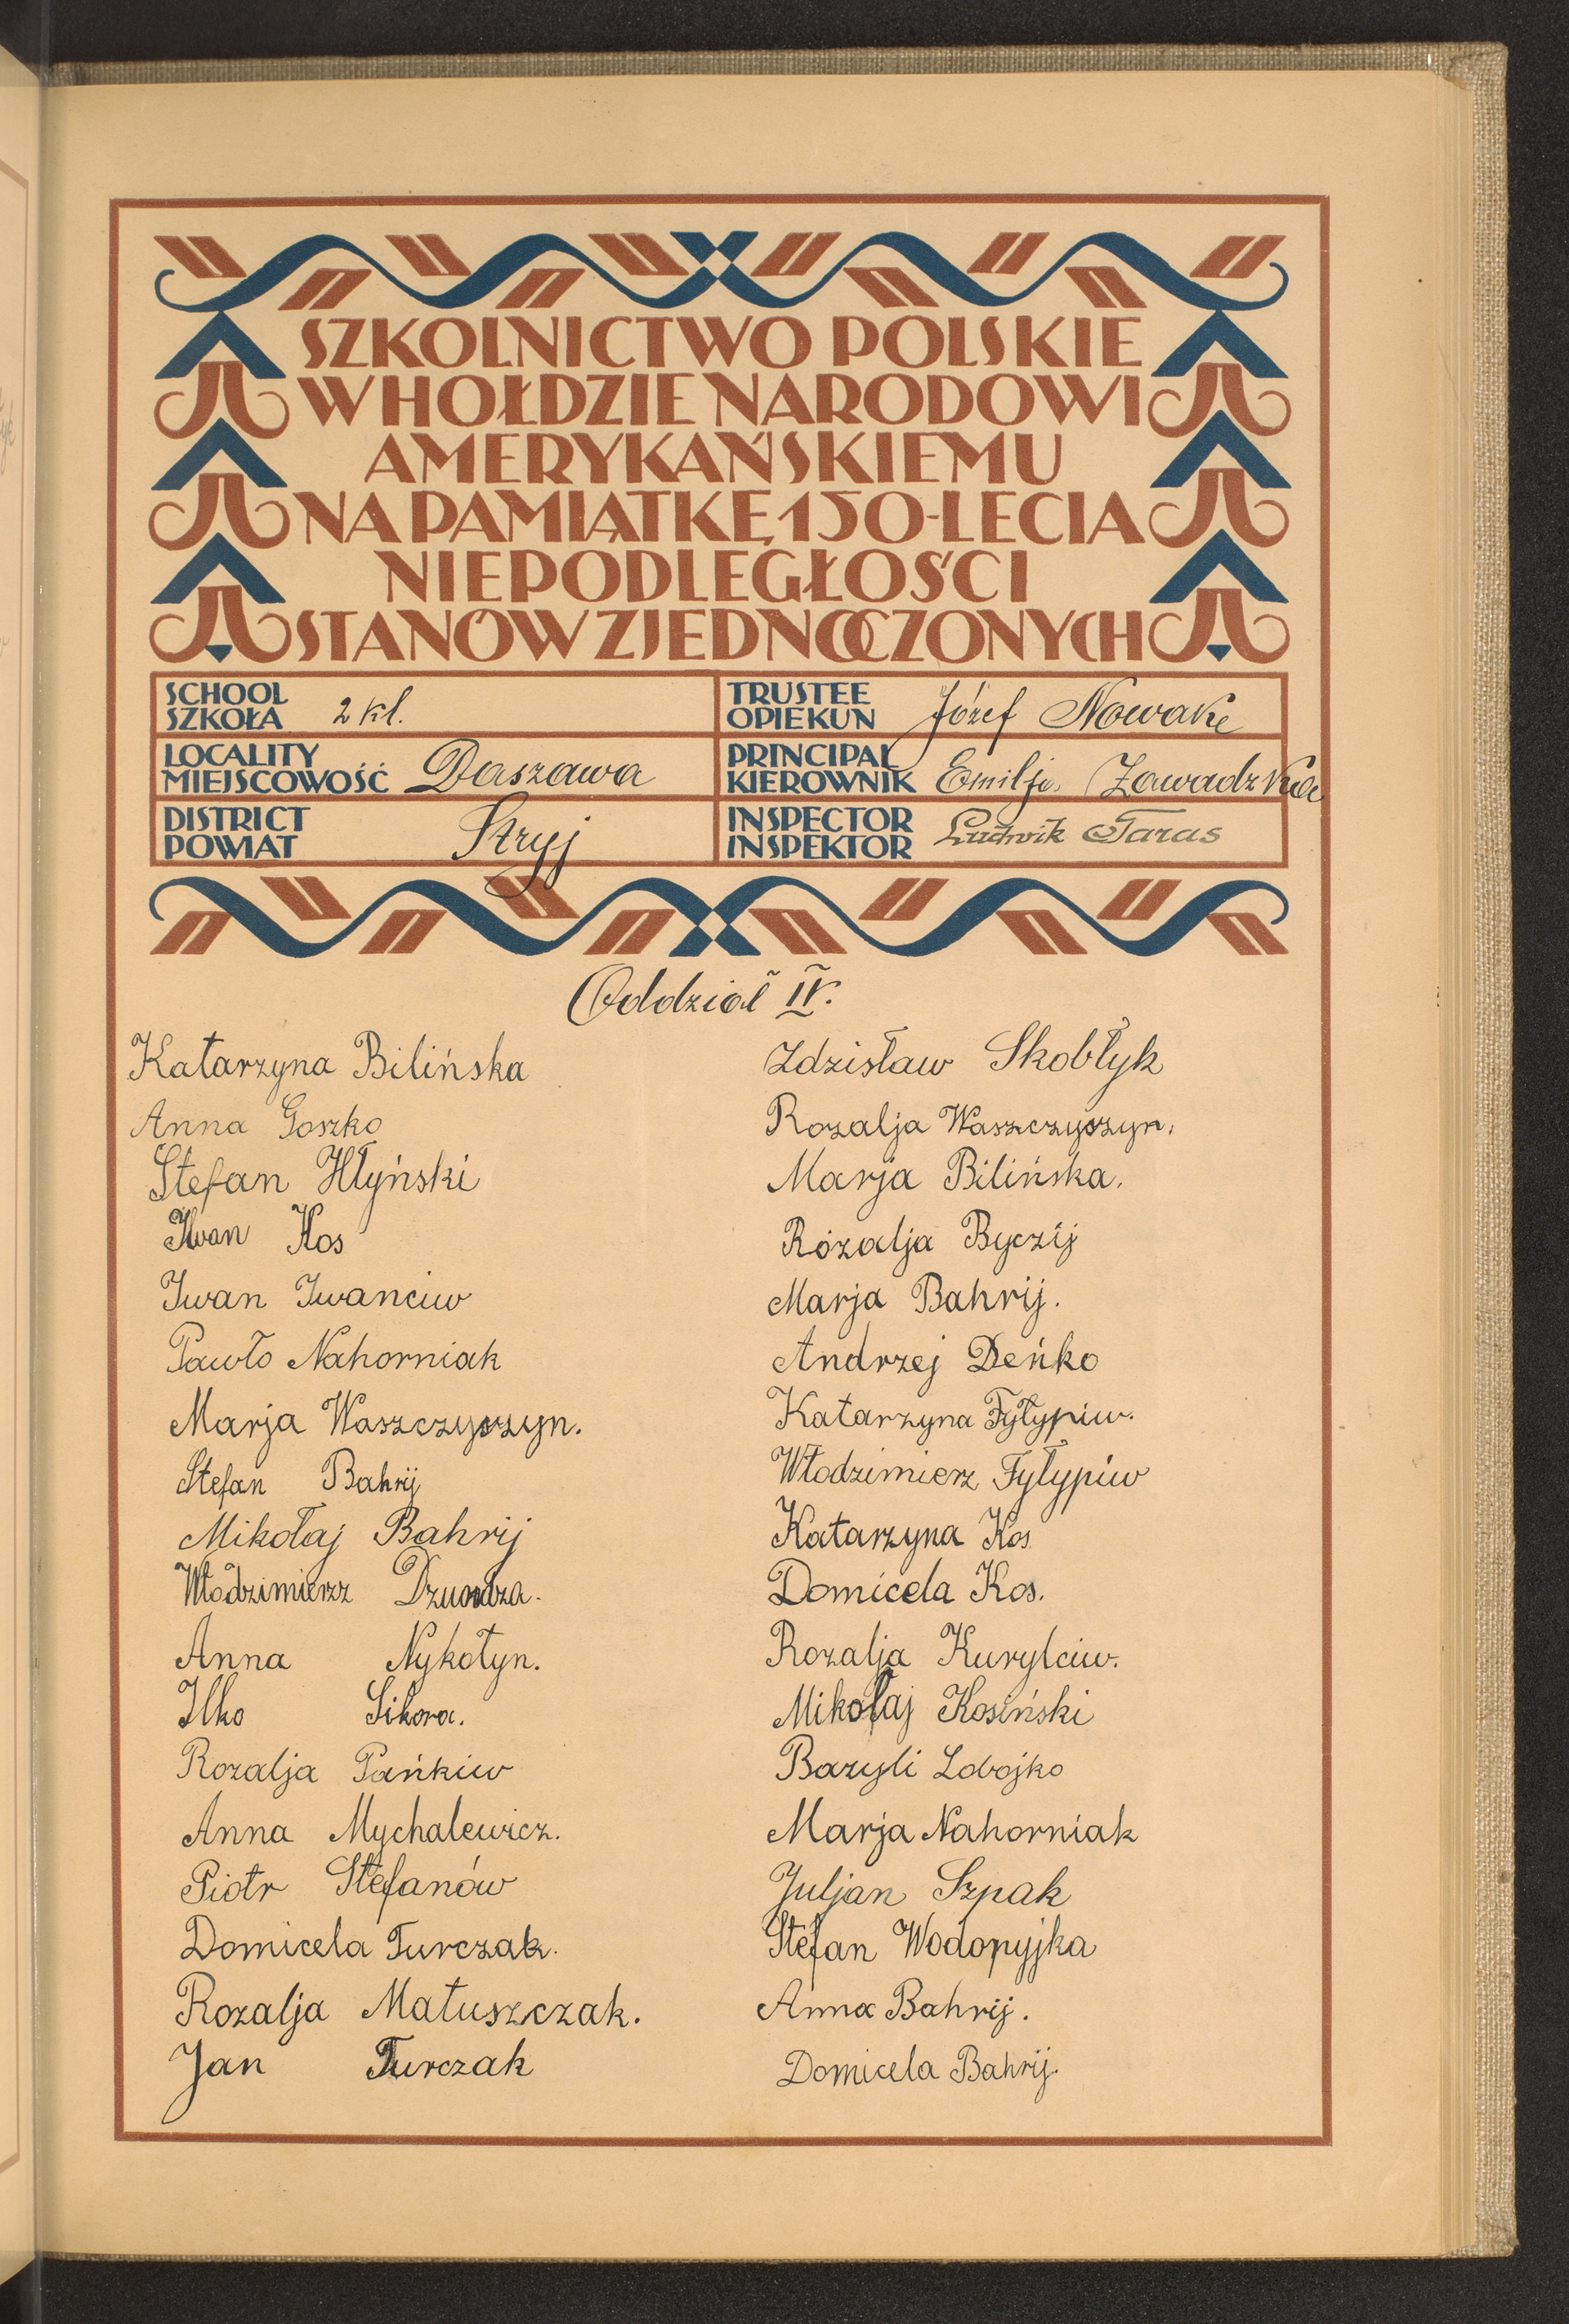 SZKOLNICTWO POLSKIE
W HOŁDZIE NARODOWI
AMERYKAŃSKIEMU
NA PAMIĄTKĘ 150-LECIA
NIEPODLEGŁOŚCI
STANÓW ZJEDNOCZONYCH
SCHOOL
SZKOŁA 2 kl.
TRUSTEE
OPIEKUN Józef Nowak
LOCALITY
MIEJSCOWOŚĆ Daszawa
PRINCIPAL
KIEROWNIK Emilja Zawadzka
DISTRICT
POWIAT Stryj
INSPECTOR
INSPEKTOR Ludwik Taras
Oddział IV.
Katarzyna Bilińska
Anna Goszko
Stefan Hłyński
Iwan Kos
Iwan Iwanciw
Pawło Nahorniak
Marja Waszczyszyn.
Stefan Bahrij
Mikołaj Bahrij
Włodzimierz
Anna Nykołyn.
Ilko Sikora.
Rozalja Pańkiw
Anna Mychalewicz.
Piotr Stefanów
Domicela Turczak.
Rozalja Matuszczak.
Jan Turczak
Zdzisław Skobłyk
Rozalja Waszczyszyn.
Marja Bilińska.
Rozalja Byczij
Marja Bahrij.
Andrzej Deńko
Katarzyna Fyłypiw.
Włodzimierz Fyłypiw
Katarzyna Kos
Domicela Kos.
Rozalja Kurylciw.
Mikołaj Kosiński
Bazyli Lobojko
Marja Nahorniak
Juljan Szpak
Stefan Wodopyjka
Anna Bahrij.
Domicela Bahrij.